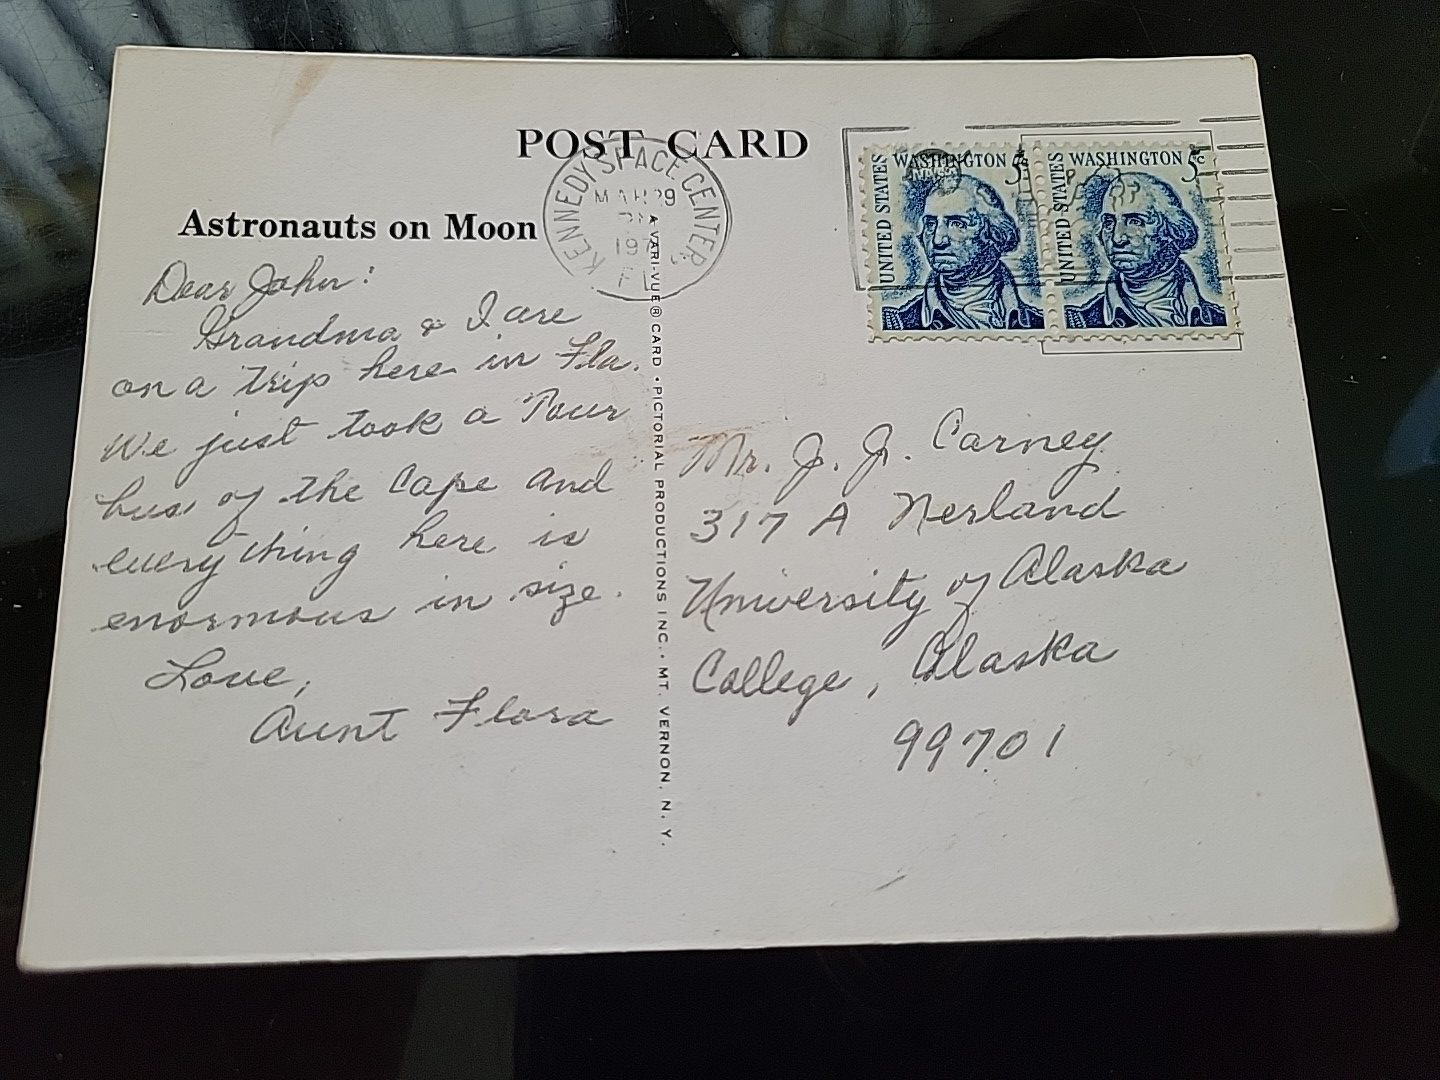 POST CARD
KENNEDY SPACE CENTER
MAR
PM
197
FL
NASA
UNITED STATES
WASHINGTON 5c
UNITED STATES
WASHINGTON 5c
Astronauts on Moon
Dear John:
Grandma & I are
on a trip here in Fla.
We just took a Tour
bus of the Cape and
everything here is
enormous in size.
Love,
Aunt Flora
A VARI-VUE® CARD • PICTORIAL PRODUCTIONS INC. • MT. VERNON, N. Y.
Mr. J. J. Carney
317 A Nerland
University of Alaska
College, Alaska
99701